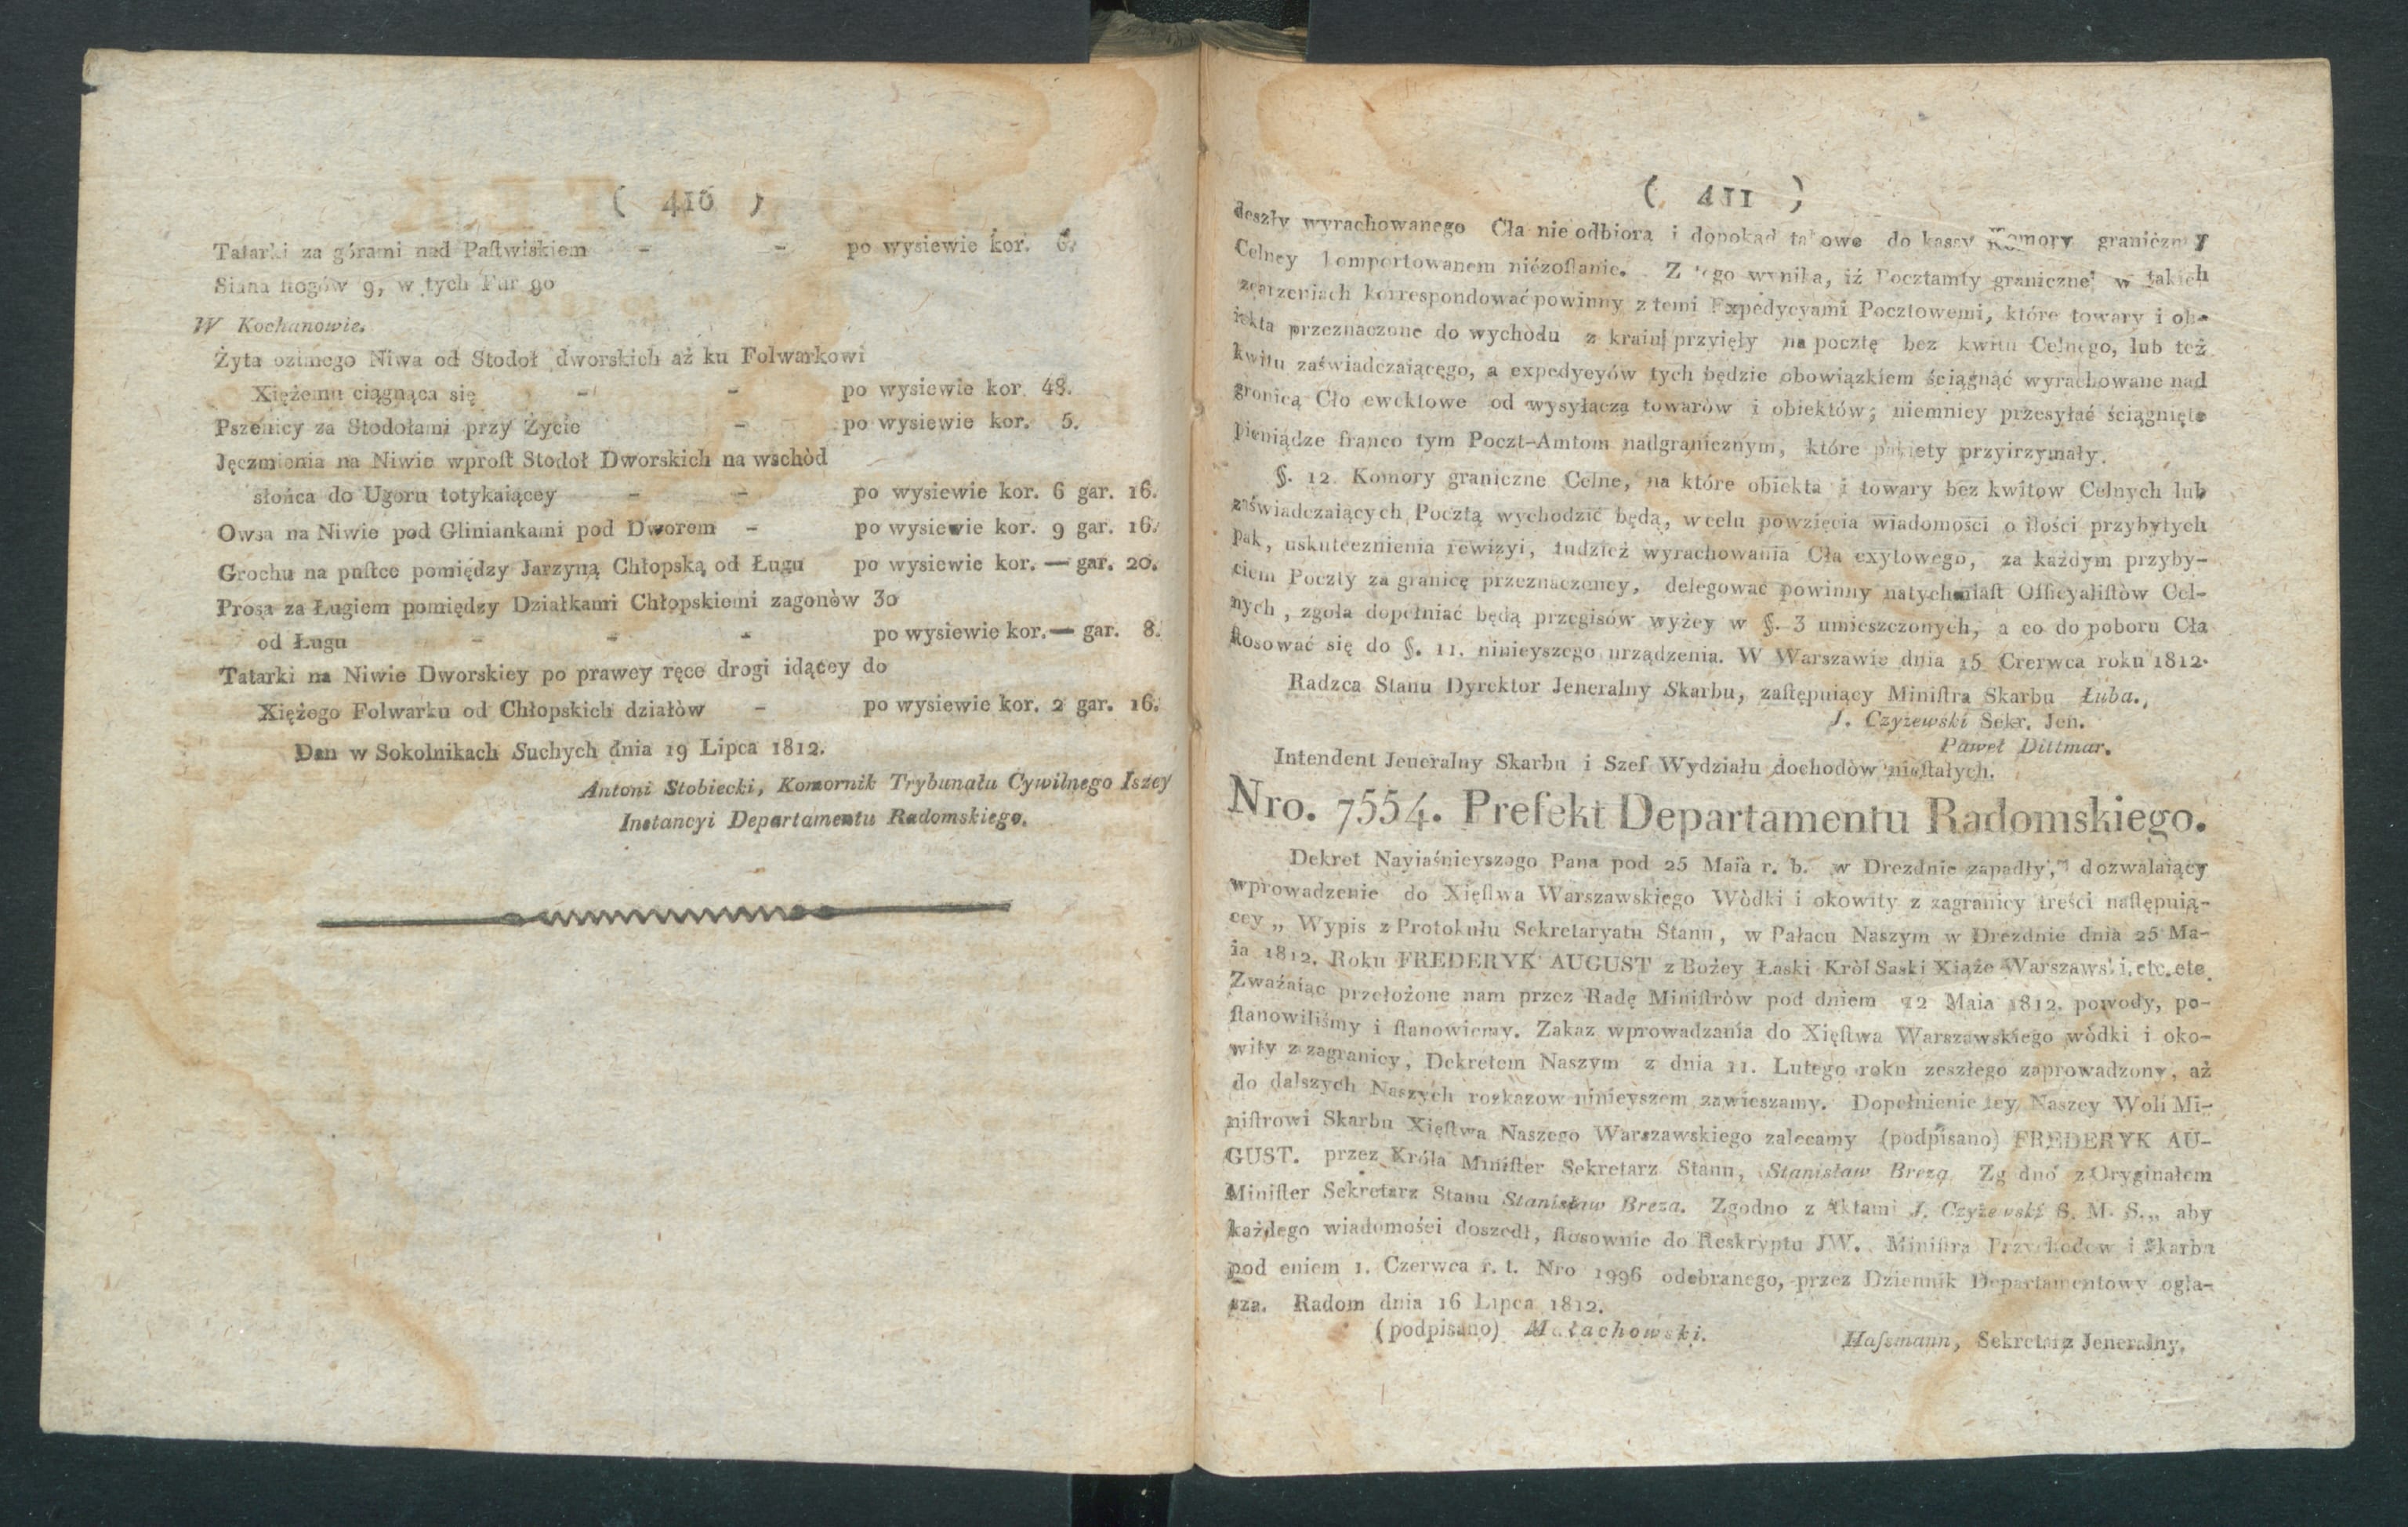 ( 410 )
Tatarki za górami nad Paſtwiskiem - - po wysiewie kor. 6.
Siana ſtogów 9, w tych Fur 90
W Kochanowie.
Żyta ozimego Niwa od Stodoł dworskich aż ku Folwarkowi
Xiężemu ciągnąca się - - po wysiewie kor. 48.
Pszenicy za Stodołami przy Życie - po wysiewie kor. 5.
Jęczmienia na Niwie wproſt Stodoł Dworskich na wschòd
słońca do Ugoru totykaiącey - - po wysiewie kor. 6 gar. 16.
Owsa na Niwie pod Gliniankami pod Dworem - po wysiewie kor. 9 gar. 16.
Grochu na puſtce pomiędzy Jarzyną Chłopską od Ługu po wysiewie kor. — gar. 20.
Prosa za Ługiem pomiędzy Działkami Chłopskiemi zagonòw 30
od Ługu - - - po wysiewie kor. — gar. 8.
Tatarki na Niwie Dworskiey po prawey ręce drogi idącey do
Xiężego Folwarku od Chłopskich działòw - po wysiewie kor. 2 gar. 16.
Dan w Sokolnikach Suchych dnia 19 Lipca 1812.
Antoni Stobiecki, Komornik Trybunału Cywilnego Iszey
Instancyi Departamentu Radomskiego.
( 411 )
doszły wyrachowanego Cła nie odbiorą i dopokad takowe do kassy Komory graniczney
Celney komportowanem niézoſtanie. Z tego wynika, iż Pocztamty graniczne w takich
zdarzeniach korrespondować powinny z temi Expedycyami Pocztowemi, które towary i ob-
iekta przeznaczone do wychòdu z kraiu przyięły na pocztę bez kwitu Celnego, lub też
kwitu zaświadczaiącego, a expedycyów tych będzie obowiązkiem ściągnąć wyrachowane nad
gronicą Cło ewektowe od wysyłacza towaròw i obiektów; niemniey przesyłać ściągnięte
pieniądze franco tym Poczt-Amtom nadgranicznym, które pakiety przyirzymały.
§. 12. Komory graniczne Celne, na które obiekta i towary bez kwitow Celnych lub
zaświadczaiących Pocztą wychodzić będą, w celu powzięcia wiadomości o ilości przybyłych
pak, uskutecznienia rewizyi, tudzież wyrachowania Cła exytowego, za każdym przyby-
ciem Poczty za granicę przeznaczoney, delegować powinny natychmiaſt Officyaliſtòw Cel-
nych, zgoła dopełniać będą przegisów wyżey w §. 3 umieszczonych, a co do poboru Cła
ſtosować się do §. 11. ninieyszego urządzenia. W Warszawie dnia 15 Crerwca roku 1812.
Radzca Stanu Dyrektor Jeneralny Skarbu, zaſtępuiący Miniſtra Skarbu Łuba.,
J. Czyżewski Sekr. Jen.
Paweł Dittmar.
Intendent Jeneralny Skarbu i Szef Wydziału dochodòw nieſtałych.
Nro. 7554. Prefekt Departamentu Radomskiego.
Dekret Nayiaśnieyszego Pana pod 25 Maia r. b. w Drezdnie zapadły, dozwalaiący
wprowadzenie do Xięſtwa Warszawskiego Wòdki i okowity z zagranicy treści naſtępuią-
cey „ Wypis z Protokułu Sekretaryatu Stanu, w Pałacu Naszym w Drezdnie dnia 25 Ma-
ia 1812. Roku FREDERYK AUGUST z Bożey Łaski Kròl Saski Xiąże Warszawski, etc. etc.
Zważaiąc przełożone nam przez Radę Miniſtròw pod dniem 12 Maia 1812. powody, po-
ſtanowiliśmy i ſtanowiemy. Zakaz wprowadzania do Xięſtwa Warszawskiego wódki i oko-
wity z zagranicy, Dekretem Naszym z dnia 11. Lutego roku zeszłego zaprowadzony, aż
do dalszych Naszych rozkazow ninieyszem zawieszamy. Dopełnienie tey Naszey Woli Mi-
niſtrowi Skarbu Xięſtwa Naszego Warszawskiego zalecamy (podpisano) FREDERYK AU-
GUST. przez Króla Miniſter Sekretarz Stanu, Stanisław Breza Zgodno z Oryginałem
Miniſter Sekretarz Stanu Stanisław Breza. Zgodno z Aktami J. Czyżewski S. M. S.„ aby
każdego wiadomości doszedł, ſtosownie do Reskryptu JW. Miniſtra Przychodow i Skarbu
pod eniem 1. Czerwca r. t. Nro 1996 odebranego, przez Dziennik Departamentowy ogła-
sza. Radom dnia 16 Lipca 1812.
(podpisano) Małachowski. Haſsmann, Sekretarz Jeneralny.